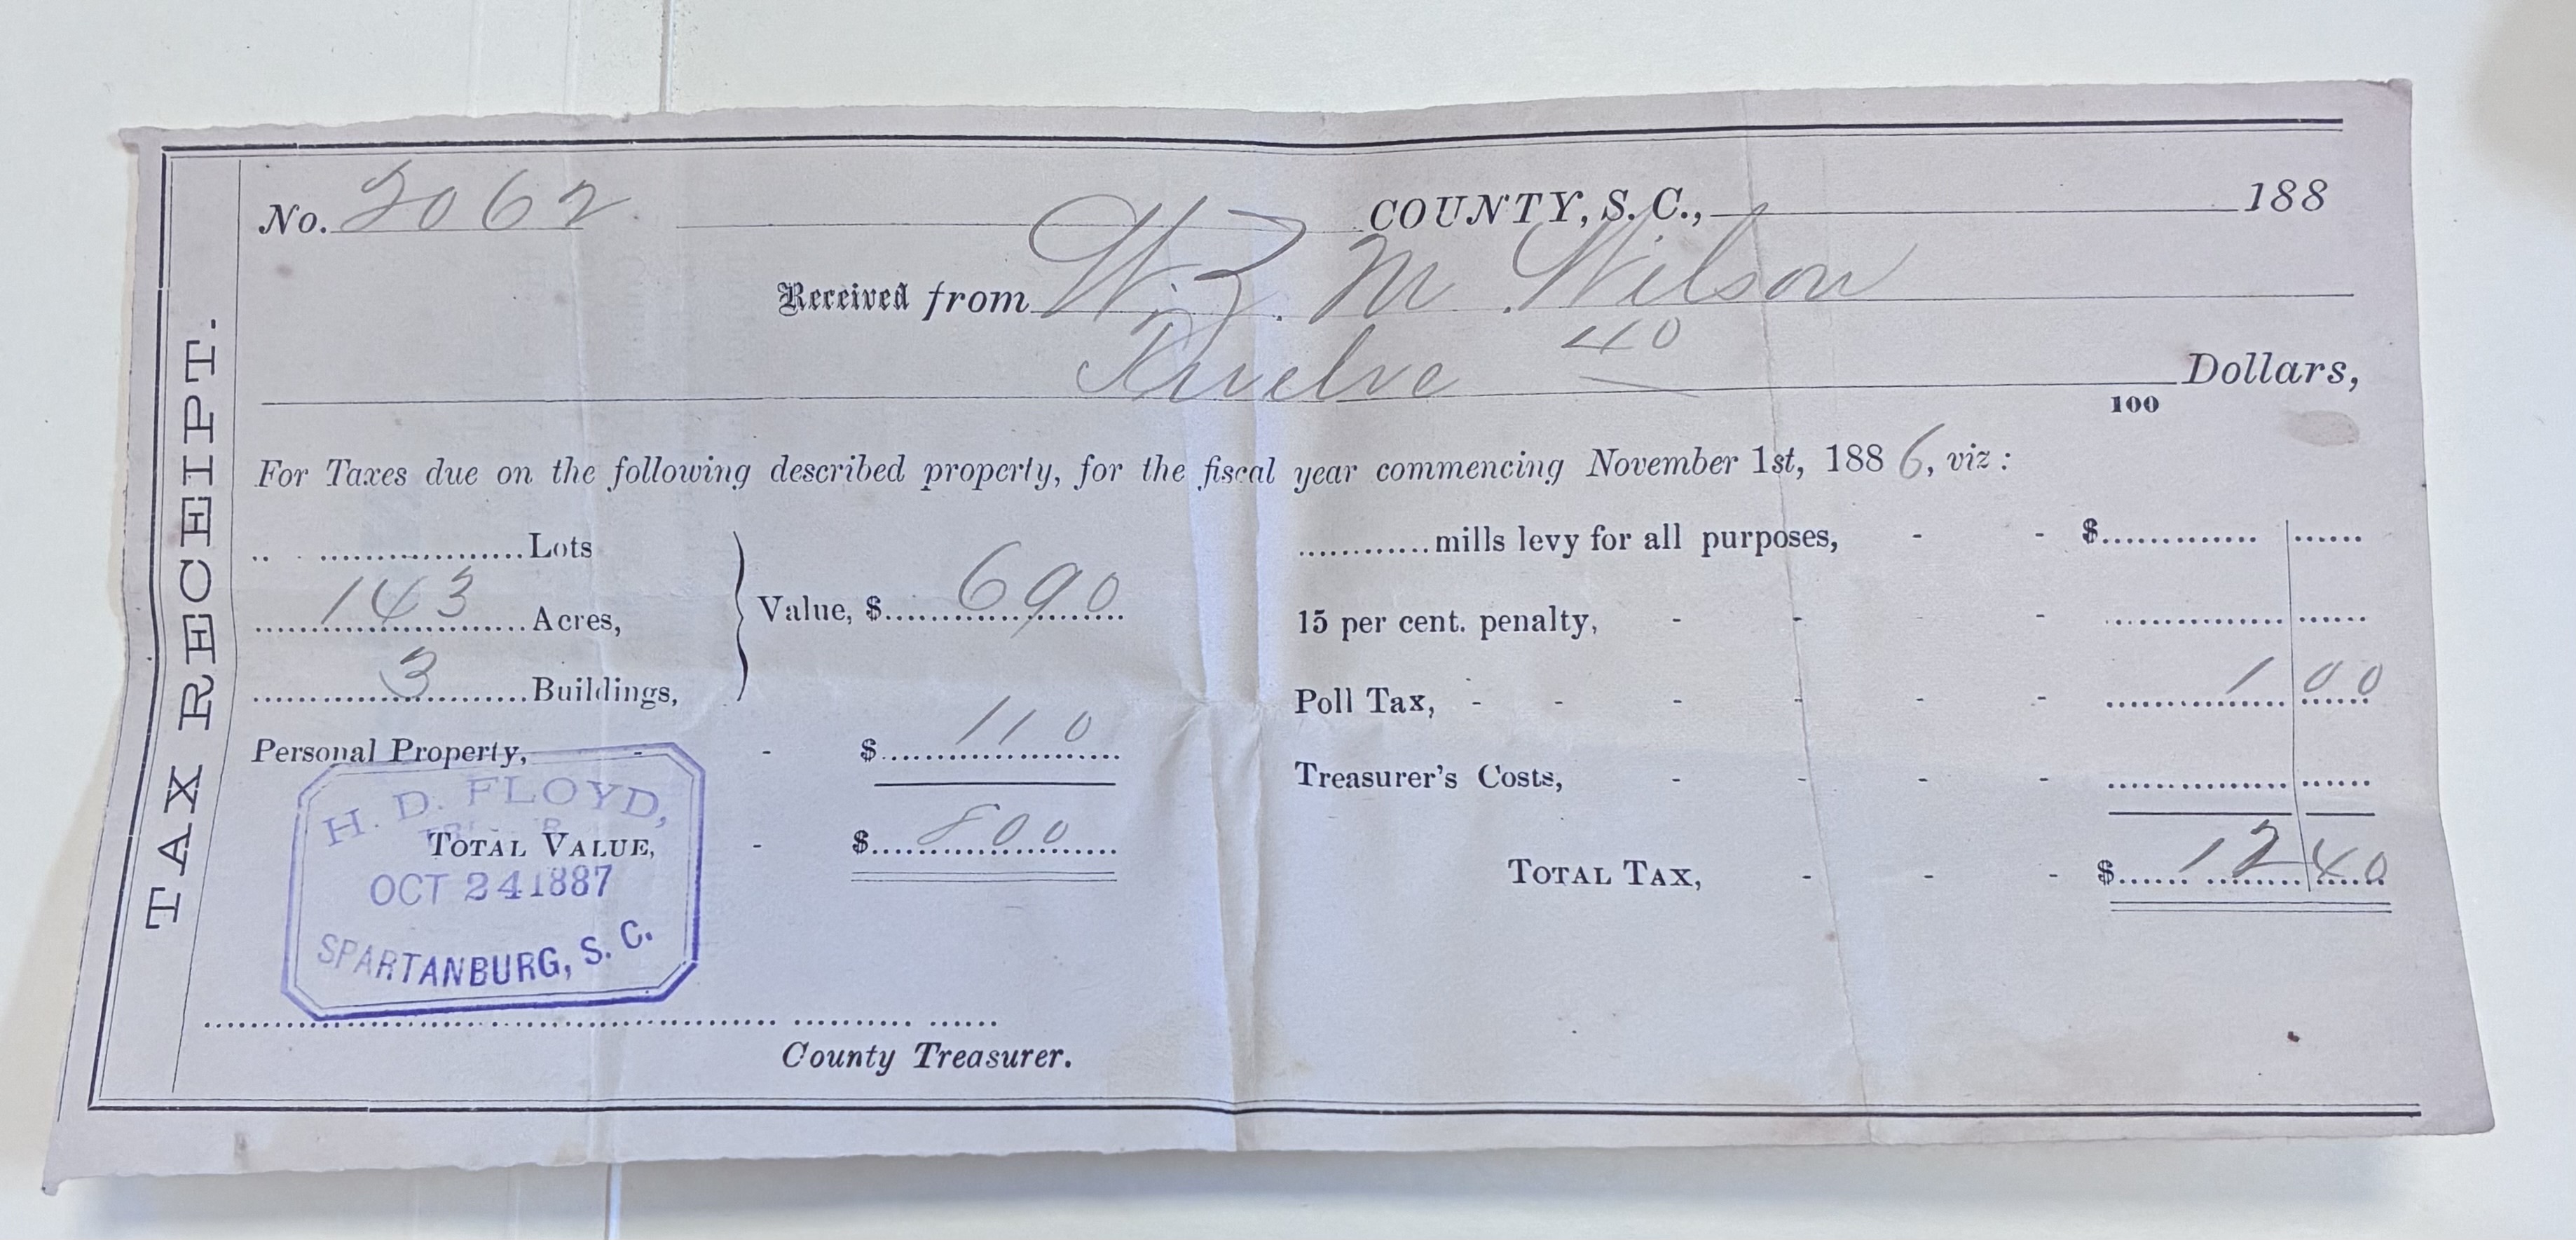 TAX RECEIPT.
No. 2062 COUNTY, S. C., 188
Received from W. Z. M Wilson
Twelve 40
100 Dollars,
For Taxes due on the following described property, for the fiscal year commencing November 1st, 1886, viz :
Lots
143 Acres,
3 Buildings,
Value, $ 690
Personal Property, - - $ 110
TOTAL VALUE, - $ 800
H. D. FLOYD,
OCT 24 1887
SPARTANBURG, S. C.
County Treasurer.
mills levy for all purposes, - - $
15 per cent. penalty, - - -
Poll Tax, - - - - - - 1 00
Treasurer's Costs, - - - -
TOTAL TAX, - - - $ 12 40